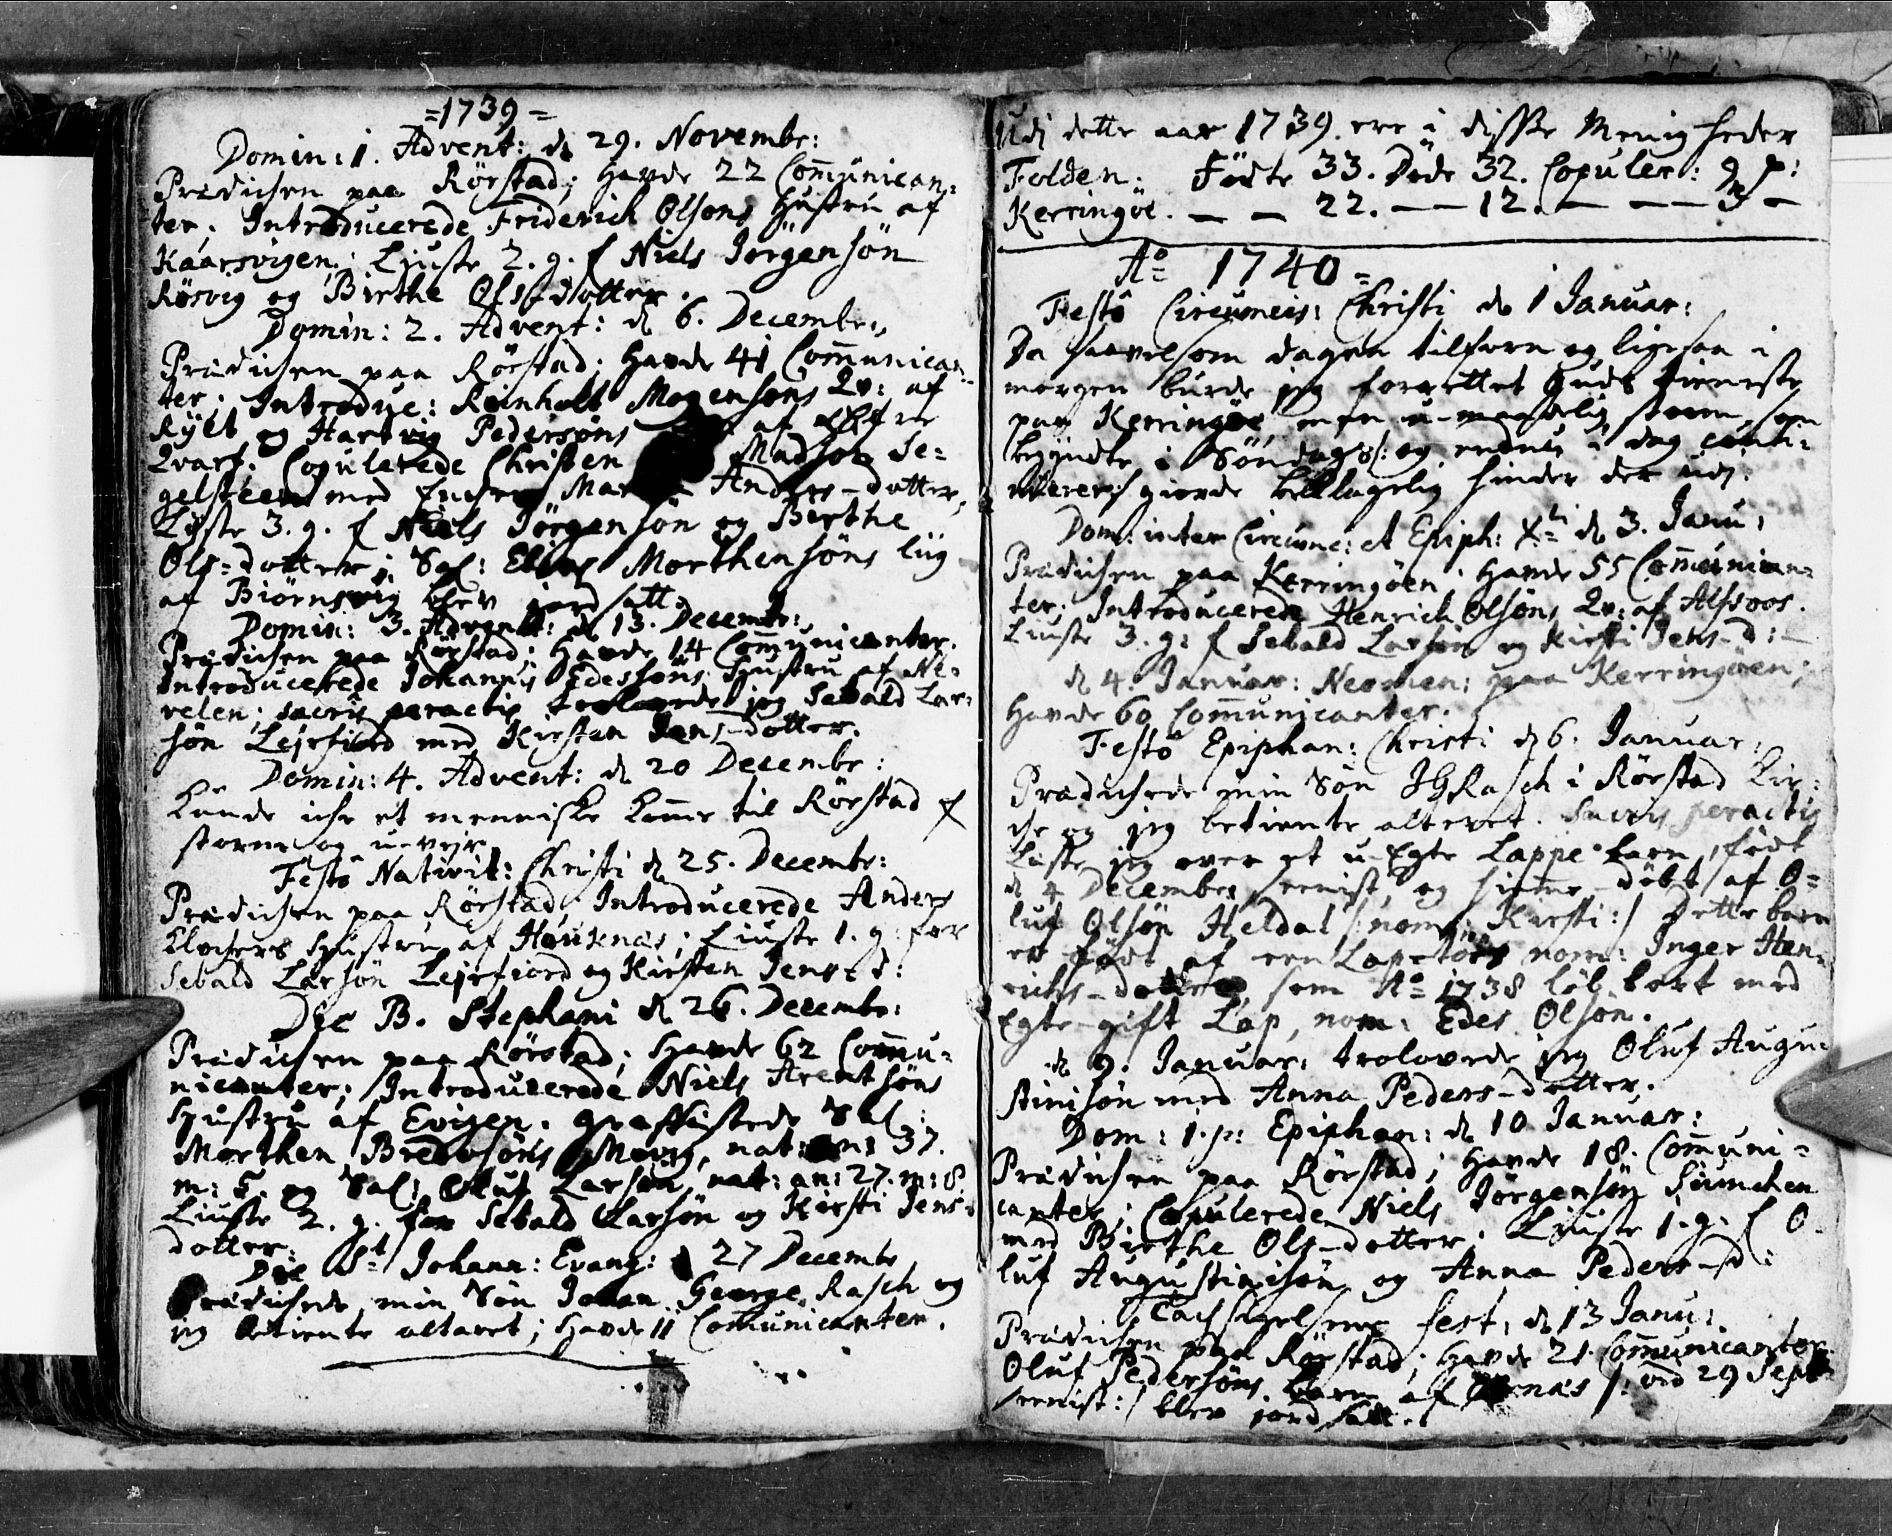 =1739=
Domin: 1. Advent: d 29. Novembr:
Prædichen paa Rörstad; Havde 22 Com̅unican-
ter. Introducerede Friderich Olsöns Hustru af
Kaarsvigen; Liuste 2. g. f Niels Jörgensön
Rösvig og Birthe Olsdotter.
Domin: 2. Advent: d 6. Decembr:,
Prædichen paa Rörstad; Havde 41 Com̅unican-
ter. Introduc: Reinholt Mogensöns Qv: af
Rylt og Hartvig Pedersöns af
Qvarf. Copulerede Christen Madsön Se=
gelsteen med Anders-dotter,
Liuste 3. g. f Niels Jörgensön og Birthe
Ols-dotter; Sal: Morthensöns liig
af Biörnsvig blev jordsatt.
Domin: 3. Advent: d 13. Decembr:,
Prædichen paa Rörstad; Havde 14 Com̅unicanter.
Introducerede Johannis Edessöns Hustru af Ne-
velen; sacris peractis trolovede jeg Sebald Lar-
sön Lejrfiord med Kirsten Jens-dotter.
Domin: 4. Advent: d 20 Decembr:
Kunde iche et menniske komme til Rörstad f
storm og uvejr.
Festo Nativit: Christi d 25. Decembr:
Prædichen paa Rörstad; Introducerede Anders
Klochers Hustru af Hauknæs; Liuste 1. g: for
Sebald Larsön Lejrfiord og Kirsten Jens-d:
Die B. Stephani d 26. Decembr:
Prædichen paa Rörstad; Havde 62 Com̅u-
nicanter; Introducerede Niels Arentsöns
Hustru af Evigen. Græsfestede Sal:
Morthen nat: an: 37.
m: 5. og Sal: Oluf Larsön, nat: an: 27. m: 8
Liuste 2. g. for Sebald Larsön og Kirsti Jens-
dotter.
Die St Johann: Evang: d 27 Decembr
Prædichede min Sön Johan George Rasch og
jeg betiente altaret; Havde 11 Com̅unicanter.
Udj dette aar 1739 ere i disse Menigheder
Folden. Födte 33. Döde 32. Copuler: 9 p:
Kerringöe. — — 22. — — 12. — — — 3 —
Ao 1740=
Festo Circumcis: Christi d 1 Januar:
Da saavelsom dagen tilforn og ligesaa i
morgen burde jeg forrettet Guds tieneste
paa Kerringöe, men u-maadelig storm, som
begyndte i Söndags og endnu i dag conti-
nuerer, giorde beklagelig hinder der udj.
Dom: inter Circumc: et Epiph: Xti d 3. Janu:
Prædichen paa Kerringöen; Havde 55 Com̅unican-
ter. Introducerede Henrich Olsöns Qv: af Alfsoos.
Liuste 3. g: f Sebald Larsön og Kirsti Jens-d:-
d 4. Januar: paa Kerringöen;
Havde 60 Com̅unicanter.
Festo Epiphan: Christi d 6. Januar,
Prædichede min Sön JGRasch i Rörstad Kir-
che og jeg betiente alteret. Sacris peractis
Liuste jeg over et u-Egte Lappe-barn, födt
d 4 Decembr: sennist, og hieme-döbt af O-
luf Olsön Heldal /: nom: Kirsti :/ Dette barn
er födt af een Lapetös nom: Inger Hen-
richs-dotter, som Ao 1738 löb bort med
Egte-gift Lap, nom: Edes Olsön.
d 9. Januar: trolovede jeg Oluf Augu-
stinisön med Anna Peders-dotter.
Dom: 1. p: Epiphan: d 10 Januar:
Prædichen paa Rörstad; Havde 18. Com̅uni-
canter; Copulerede Niels Jörgensön
med Birthe Ols-dotter. Liuste 1. g: f O-
luf Augustinisön og Anna Peders-d:
Tachsigelsens fest, d 13 Janu:
Prædichen paa Rörstad; Havde 21. Com̅unicanter
Oluf Pedersöns barn af /: 29 Sept
sennist :/ blev jordsatt.